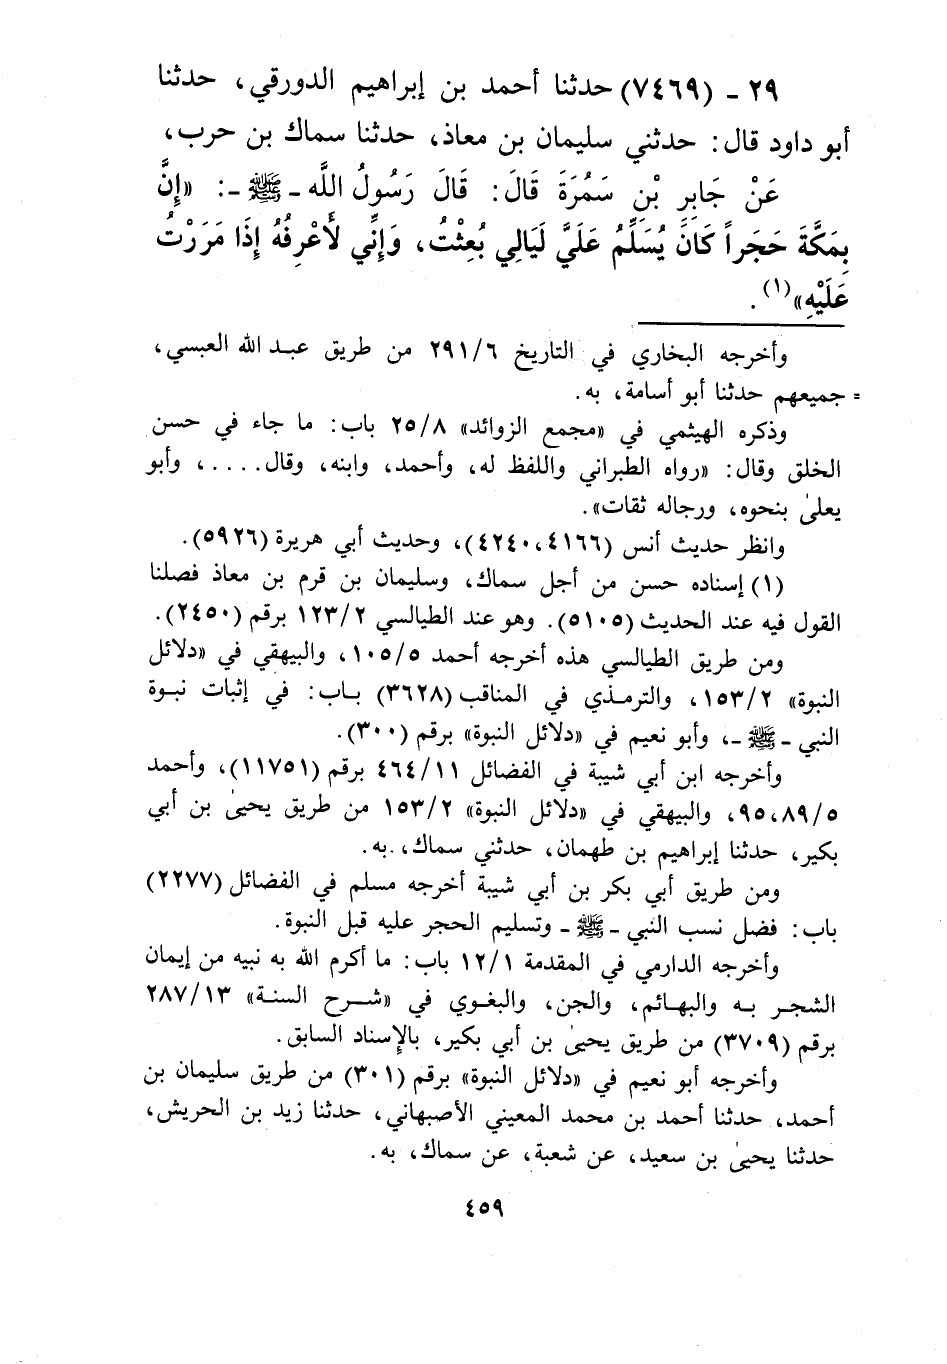 ٢٩ - (٧٤٦٩) حدثنا أحمد بن إبراهيم الدورقي، حدثنا
أبو داود قال: حدثني سليمان بن معاذ، حدثنا سماك بن حرب،
عَنْ جَابِرِ بْنِ سَمُرَةَ قَالَ: قَالَ رَسُولُ اللَّه - ﷺ -: «إِنَّ
بِمَكَّةَ حَجَراً كَانَ يُسَلِّمُ عَلَيَّ لَيَالِي بُعِثْتُ، وَإِنِّي لَأَعْرِفُهُ إِذَا مَرَرْتُ
عَلَيْهِ»(١).
وأخرجه البخاري في التاريخ ٢٩١/٦ من طريق عبد الله العبسي،
= جميعهم حدثنا أبو أسامة، به.
وذكره الهيثمي في «مجمع الزوائد» ٢٥/٨ باب: ما جاء في حسن
الخلق وقال: «رواه الطبراني واللفظ له، وأحمد، وابنه، وقال....، وأبو
يعلىٰ بنحوه، ورجاله ثقات».
وانظر حديث أنس (٤١٦٦، ٤٢٤٠)، وحديث أبي هريرة (٥٩٢٦).
(١) إسناده حسن من أجل سماك، وسليمان بن قرم بن معاذ فصلنا
القول فيه عند الحديث (٥١٠٥). وهو عند الطيالسي ١٢٣/٢ برقم (٢٤٥٠).
ومن طريق الطيالسي هذه أخرجه أحمد ١٠٥/٥، والبيهقي في «دلائل
النبوة» ١٥٣/٢، والترمذي في المناقب (٣٦٢٨) باب: في إثبات نبوة
النبي - ﷺ -، وأبو نعيم في «دلائل النبوة» برقم (٣٠٠).
وأخرجه ابن أبي شيبة في الفضائل ٤٦٤/١١ برقم (١١٧٥١)، وأحمد
٨٩/٥، ٩٥، والبيهقي في «دلائل النبوة» ١٥٣/٢ من طريق يحيىٰ بن أبي
بكير، حدثنا إبراهيم بن طهمان، حدثني سماك، به.
ومن طريق أبي بكر بن أبي شيبة أخرجه مسلم في الفضائل (٢٢٧٧)
باب: فضل نسب النبي - ﷺ - وتسليم الحجر عليه قبل النبوة.
وأخرجه الدارمي في المقدمة ١٢/١ باب: ما أكرم الله به نبيه من إيمان
الشجر به والبهائم، والجن، والبغوي في «شرح السنة» ٢٨٧/١٣
برقم (٣٧٠٩) من طريق يحيىٰ بن أبي بكير، بالإسناد السابق.
وأخرجه أبو نعيم في «دلائل النبوة» برقم (٣٠١) من طريق سليمان بن
أحمد، حدثنا أحمد بن محمد المعيني الأصبهاني، حدثنا زيد بن الحريش،
حدثنا يحيىٰ بن سعيد، عن شعبة، عن سماك، به.
٤٥٩